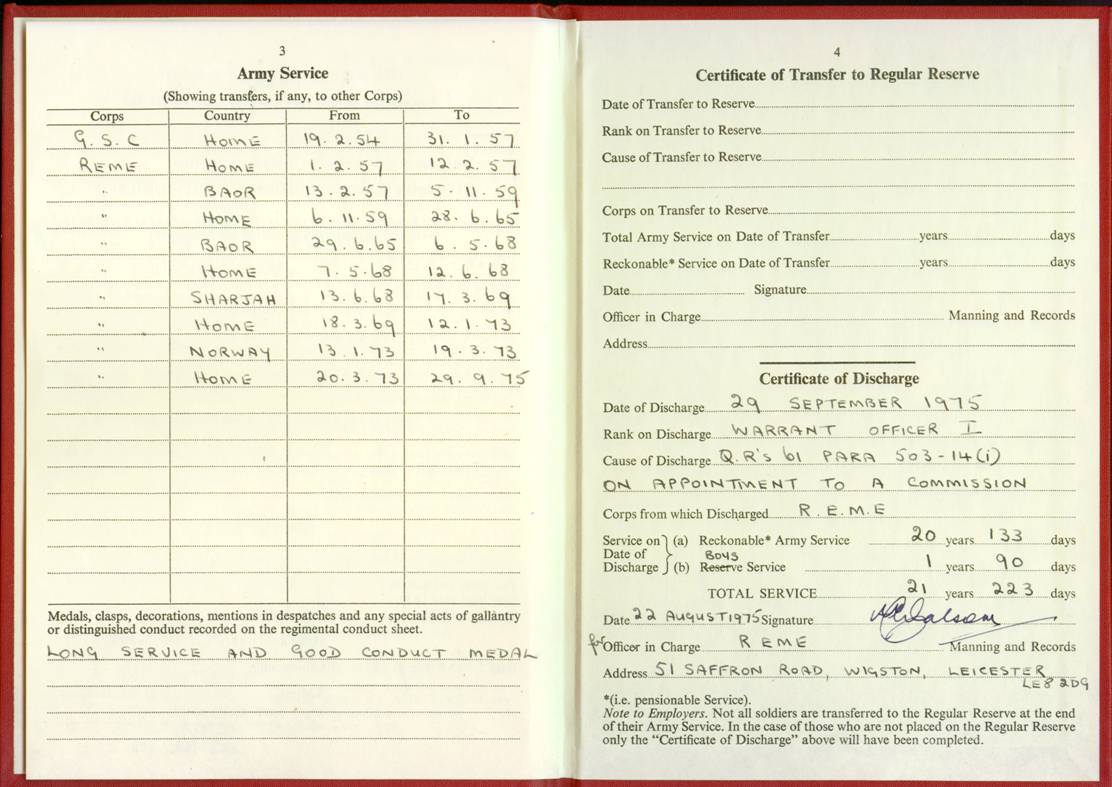 3
Army Service
(Showing transfers, if any, to other Corps)
Corps Country From To
G.S.C HOME 19.2.54 31.1.57
REME HOME 1.2.57 12.2.57
" BAOR 13.2.57 5.11.59
" HOME 6.11.59 28.6.65
" BAOR 29.6.65 6.5.68
" HOME 7.5.68 12.6.68
" SHARJAH 13.6.68 17.3.69
" HOME 18.3.69 12.1.73
" NORWAY 13.1.73 19.3.73
" HOME 20.3.73 29.9.75
Medals, clasps, decorations, mentions in despatches and any special acts of gallantry
or distinguished conduct recorded on the regimental conduct sheet.
LONG SERVICE AND GOOD CONDUCT MEDAL
4
Certificate of Transfer to Regular Reserve
Date of Transfer to Reserve
Rank on Transfer to Reserve
Cause of Transfer to Reserve
Corps on Transfer to Reserve
Total Army Service on Date of Transfer years days
Reckonable* Service on Date of Transfer years days
Date Signature
Officer in Charge Manning and Records
Address
Certificate of Discharge
Date of Discharge 29 SEPTEMBER 1975
Rank on Discharge WARRANT OFFICER I
Cause of Discharge Q.R's 61 PARA 503-14(i)
ON APPOINTMENT TO A COMMISSION
Corps from which Discharged R.E.M.E
Service on (a) Reckonable* Army Service 20 years 133 days
Date of BOYS
Discharge (b) Reserve Service 1 years 90 days
TOTAL SERVICE 21 years 223 days
Date 22 AUGUST 1975 Signature
for Officer in Charge REME Manning and Records
Address 51 SAFFRON ROAD, WIGSTON, LEICESTER
LE8 2DG
*(i.e. pensionable Service).
Note to Employers. Not all soldiers are transferred to the Regular Reserve at the end
of their Army Service. In the case of those who are not placed on the Regular Reserve
only the "Certificate of Discharge" above will have been completed.